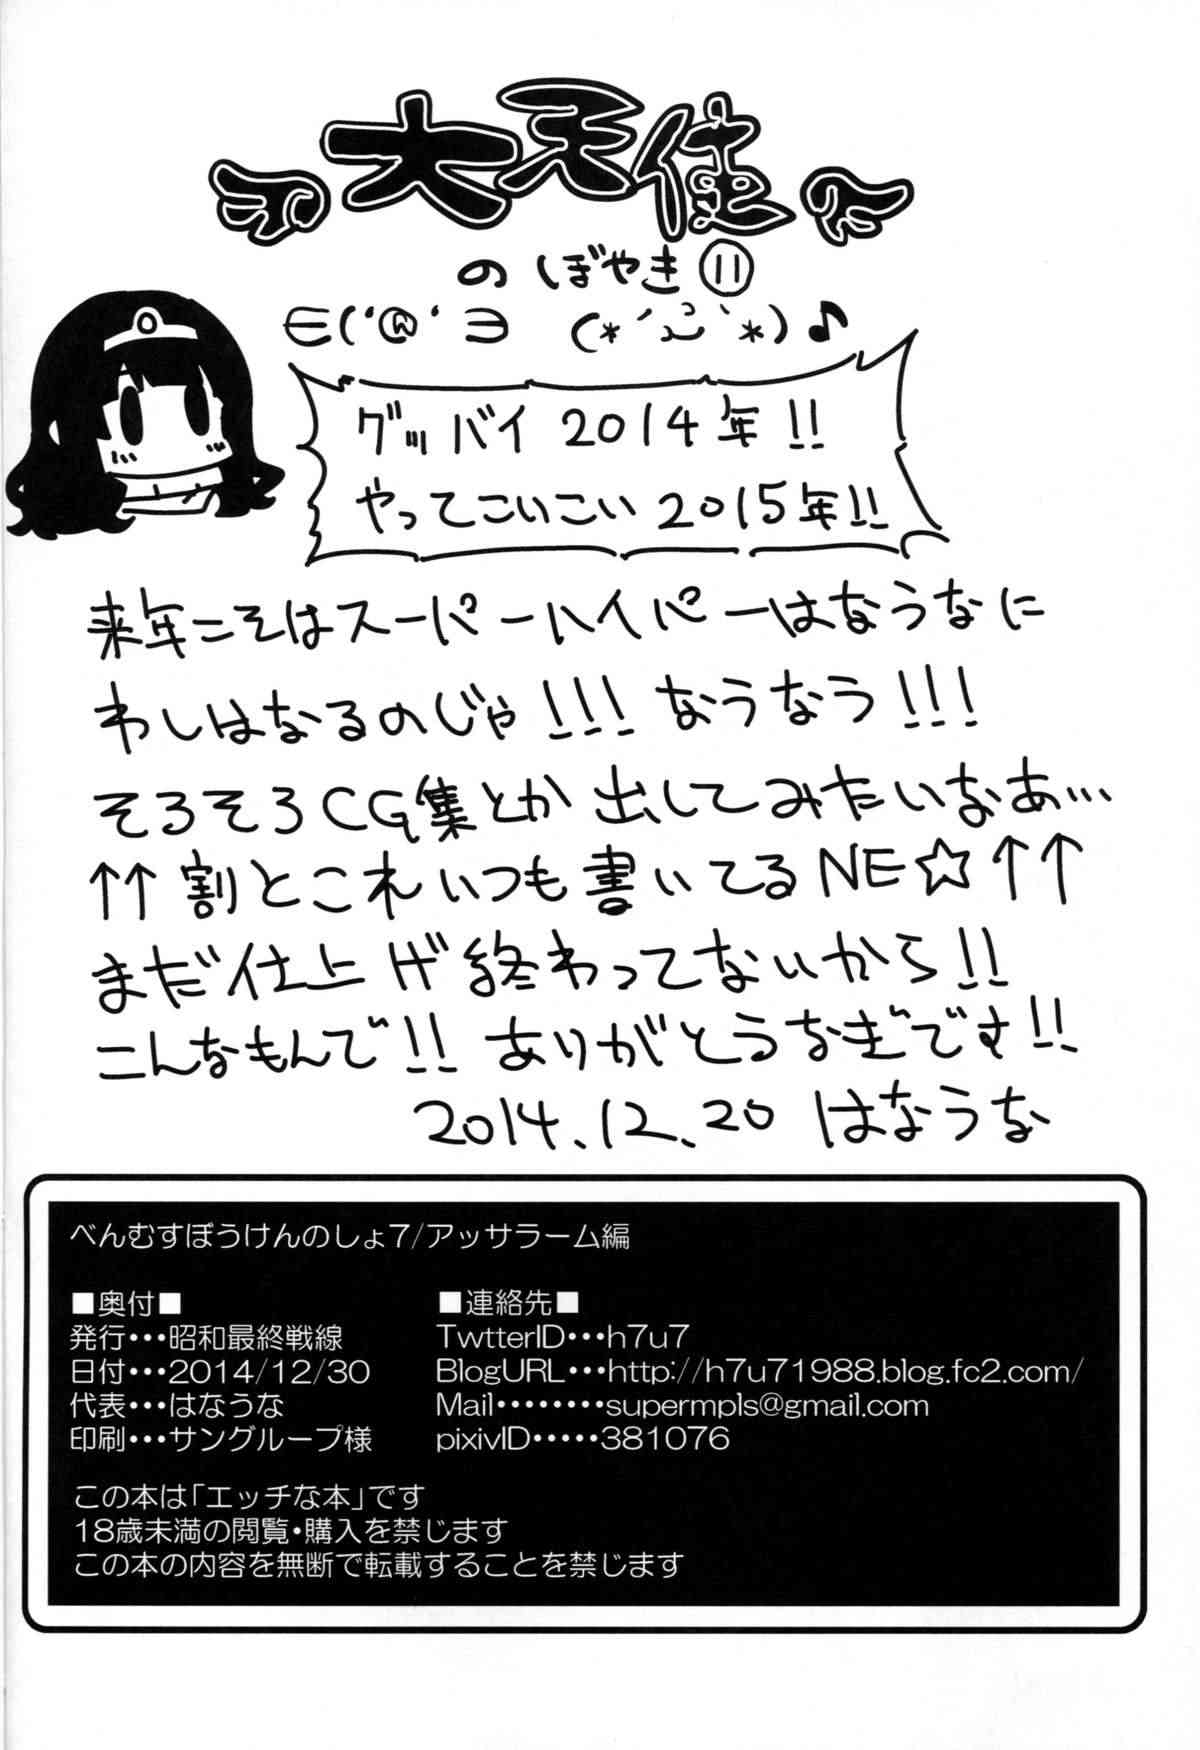 大天使
のぼやき⑪
∈('@'∋ (*´ω`*)♪
グッバイ2014年!!
やってこいこい2015年!!
来年こそはスーパーハイパーはなうなに
わしはなるのじゃ!!!なうなう!!!
そろそろCG集とか出してみたいなあ…
↑↑割とこれいつも書いてるNE☆↑↑
まだ仕上げ終わってないから!!
こんなもんで!!ありがとうなぎです!!
2014.12.20 はなうな
べんむすぼうけんのしょ7/アッサラーム編
■奥付■
発行・・・昭和最終戦線
日付・・・2014/12/30
代表・・・はなうな
印刷・・・サングループ様
■連絡先■
TwtterID・・・h7u7
BlogURL・・・http://h7u71988.blog.fc2.com/
Mail・・・・・・・・supermpls@gmail.com
pixivID・・・・・381076
この本は「エッチな本」です
18歳未満の閲覧・購入を禁じます
この本の内容を無断で転載することを禁じます